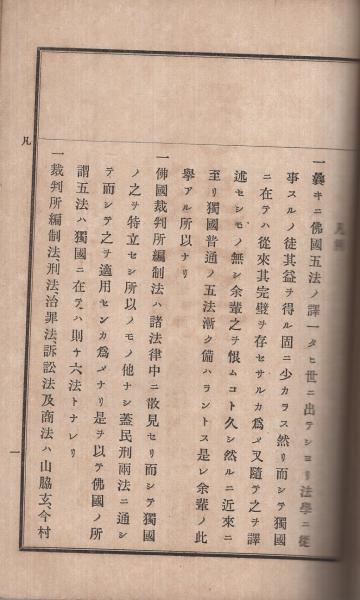 一曩キニ佛國五法ノ譯一タヒ世ニ出テシヨリ法學ニ從
事スルノ徒其益ヲ得ル固ニ少カラス然リ而シテ獨國
ニ在テハ從來其完璧ヲ存セサルカ爲メ又隨テ之ヲ譯
述セシモノ無シ余輩之ヲ恨ムコト久シ然ルニ近來ニ
至リ獨國普通ノ五法漸ク備ハラントス是レ余輩ノ此
擧アル所以ナリ
一佛國裁判所編制法ハ諸法律中ニ散見セリ而シテ獨國
ノ之ヲ特立セシ所以ノモノ他ナシ蓋民刑兩法ニ通シ
テ而シテ之ヲ適用センカ爲メナリ是ヲ以テ佛國ノ所
謂五法ハ獨國ニ在テハ則ケ六法トナレリ
一裁判所編制法、刑法、治罪法、訴訟法及商法ハ山脇玄、今村
凡
一